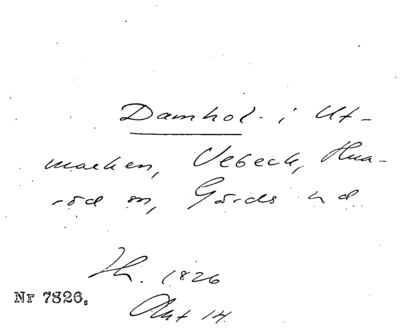 Damhol. i Ut-
marken, Vebeck, Hua-
röd sn, Gärds hd
Th. 1826
Akt 14.
Nr 7326.